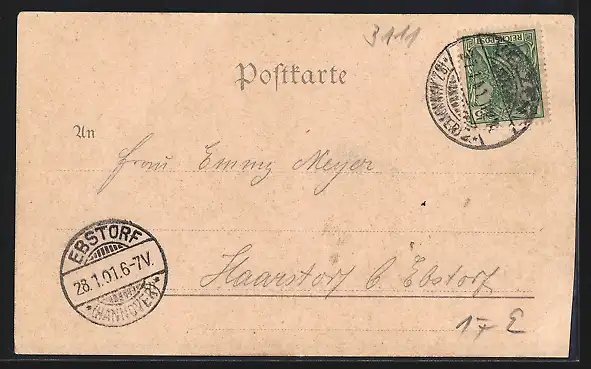 3111
REICHSPOST
Postkarte
An
Frau Emmy Meyer
EBSTORF
28.1.01.6-7V.
*(HANNOVER)*
Haarstorf b. Ebstorf